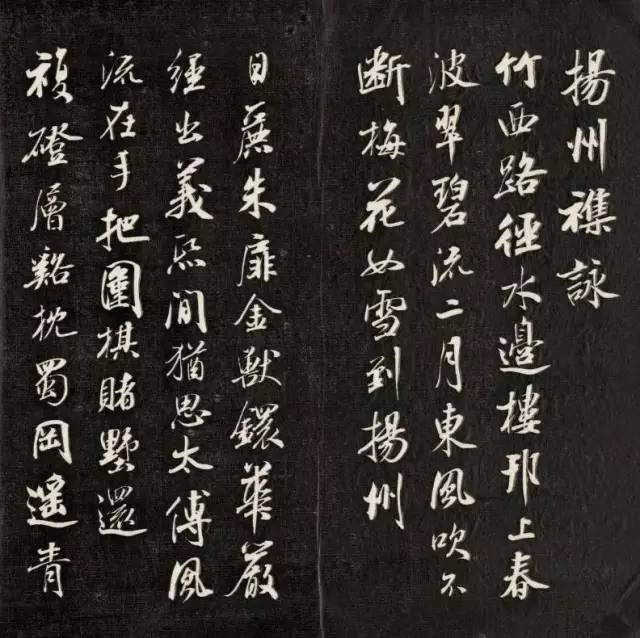 揚州襍詠
竹西路徑水邊樓邗上春
波翠碧流二月東風吹不
断梅花如雪到揚州
日蘸朱扉金獸鐶華嚴
經出義熙間猶思太傅風
流在手把圍棋賭墅還
複磴層谿枕蜀岡遥青